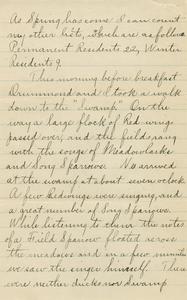 As Spring has come I can count
my other lists, which are as follows
Permanent Residents 22, Winter
Residents 9.
This morning before breakfast
Drummond and I took a walk
down to the "Swamp." On the
way a large flock of Red-wings
passed over, and the fields rang
with the songs of Meadowlarks
and Song Sparrows. We arrived
at the swamp at about seven o'clock.
A few Redwings were singing, and
a great number of Song Sparrows.
While listening to them the notes
of a Field Sparrow floated across
the meadows and in a few minutes
we saw the singer himself. There
were neither ducks nor Swamp